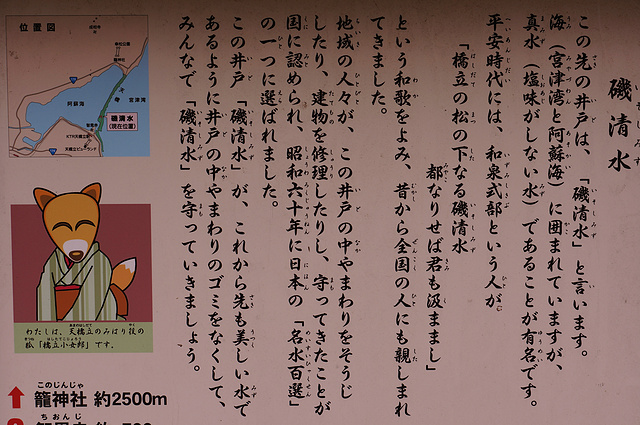 磯清水
いそしみず
この先の井戸は、「磯清水」と言います。
海（宮津湾と阿蘇海）に囲まれていますが、
真水（塩味がしない水）であることが有名です。
平安時代には、和泉式部という人が
「橋立の松の下なる磯清水
都なりせば君も汲ままし」
という和歌をよみ、昔から全国の人にも親しまれ
てきました。
地域の人々が　この井戸の中やまわりをそうじ
したり、建物を修理したりし、守ってきたことが
国に認められ、昭和六十年に日本の「名水百選」
の一つに選ばれました。
この井戸「磯清水」が、これから先も美しい水で
あるように井戸の中やまわりのゴミをなくして、
みんなで「磯清水」を守っていきましょう。
位置図
阿蘇海
宮津湾
磯清水
(現在位置)
わたしは、天橋立のみはり役の
狐「橋立小女郎」です。
このじんじゃ
籠神社 約2500m
ちおんじ